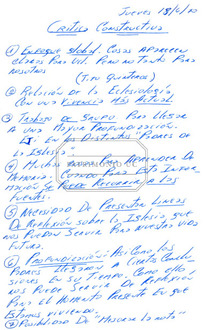 Jueves 18/6/
Critica Constructiva
① Enfoque global. Cosas aparecen
claras para Uds. Pero no tanto para
nosotros
(Tipo
② Relación de la Eclesiología
con una vivencia más actual.
③ Trabajo de Grupo para llegar
a una mayor profundización.
Ej. En los distintos Padres de
la Iglesia
④ Mucha para aprender de
memoria. Cuando para esta
se puede recurrir a las
fuentes.
⑤ Necesidad de presentar líneas
de reflexión sobre la Iglesia, que
nos puedan servir para nuestra vida
futura.
⑥ Profundización: Así como los
Padres llegaron a ciertas conclu-
siones en su tiempo. Como ellos
nos puede servir de reflexión
para el momento presente en que
estamos viviendo.
⑦ Posibilidad de "